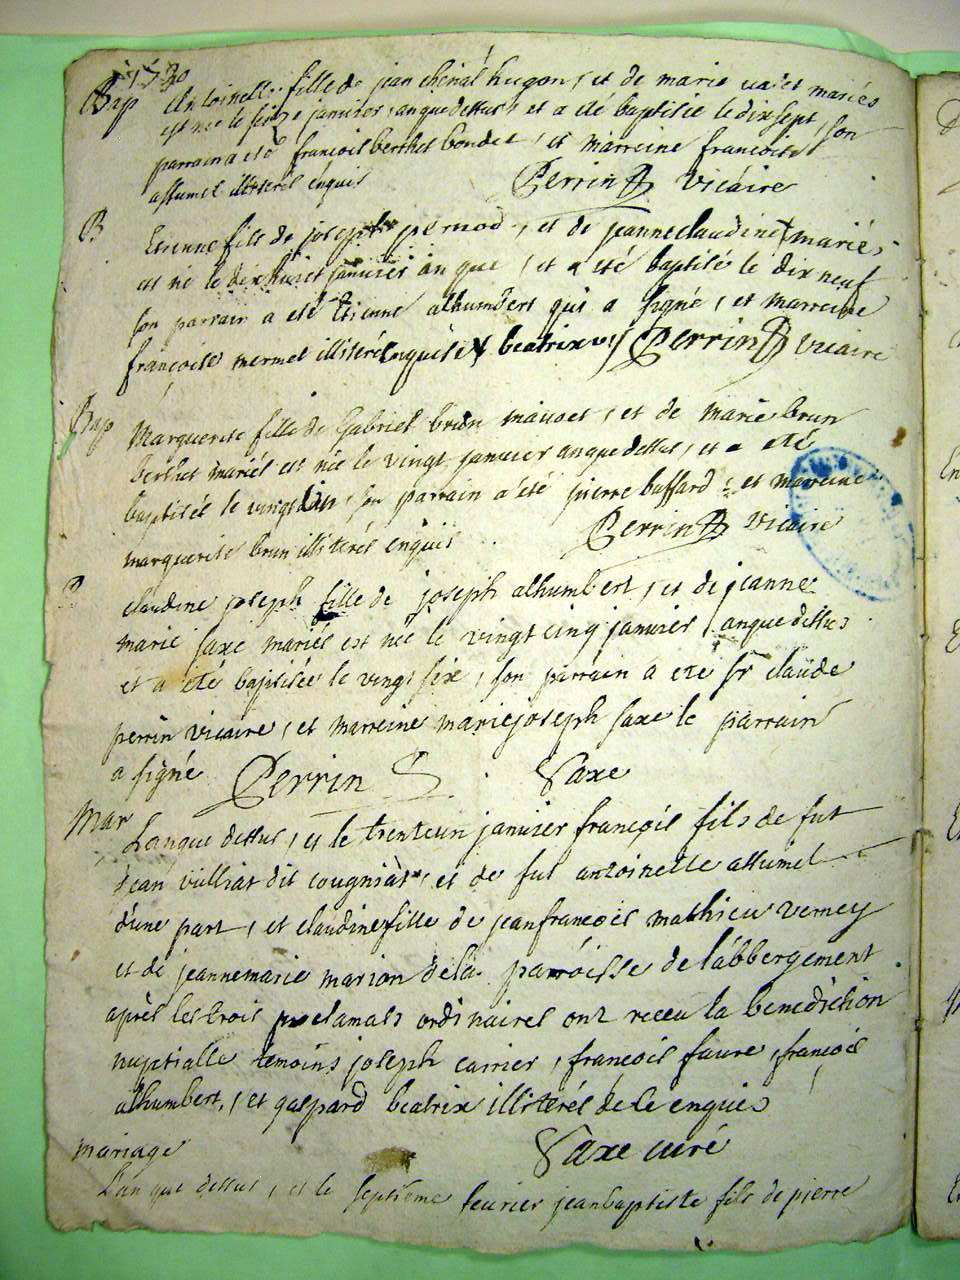 1730
Bap Antoinette fille de jean chenal hugon, et de marie mariés
est née le seize janvier, anque dessus, et a eté baptisée le dixsept, son
parrain a eté francois berthet bondet, et marreine francoise
assumel illiterés enquis Perrin vicaire
B Etienne fils de joseph pernod, et de jeanneclaudine mariés
est né le dixhuict janvier an que, et a eté baptisé le dix neuf
son parrain a eté Etienne alhumbert qui a signé, et marreine
francoise mermet illiterée enquise beatrix Perrin vicaire
Bap Marguerite fille de Gabriel brun mauoet, et de marie brun
berthet mariés est née le vingt janvier anque dessus, et a eté
baptisée le vingt un, son parrain a été pierre buffard, et marreine
marguerite brun illiterés enquis Perrin vicaire
B claudine joseph fille de joseph alhumbert, et de jeanne
marie saxe mariés est née le vingt cinq janvier, anque dessus
et a été baptisée le vingt six, son parrain a eté sr claude
perrin vicaire, et marreine mariejoseph saxe le parrain
a signé Perrin Saxe
Mar Lanque dessus, et le trenteun janvier françois fils de fut
jean vulliat dit cougniat, et de fut antoinette assumel
d'une part, et claudine fille de jeanfrancois mathieu verney
et de jeannemarie marion de la parroisse de l'abbergement
après les trois proclamats ordinaires ont receu la benediction
nuptialle temoins joseph carrier, francois favre, francois
alhumbert, et gaspard beatrix illiterés de ce enquis
Saxe curé
mariage
L'an que dessus, et le septieme feuvrier jeanbaptiste fils de pierre